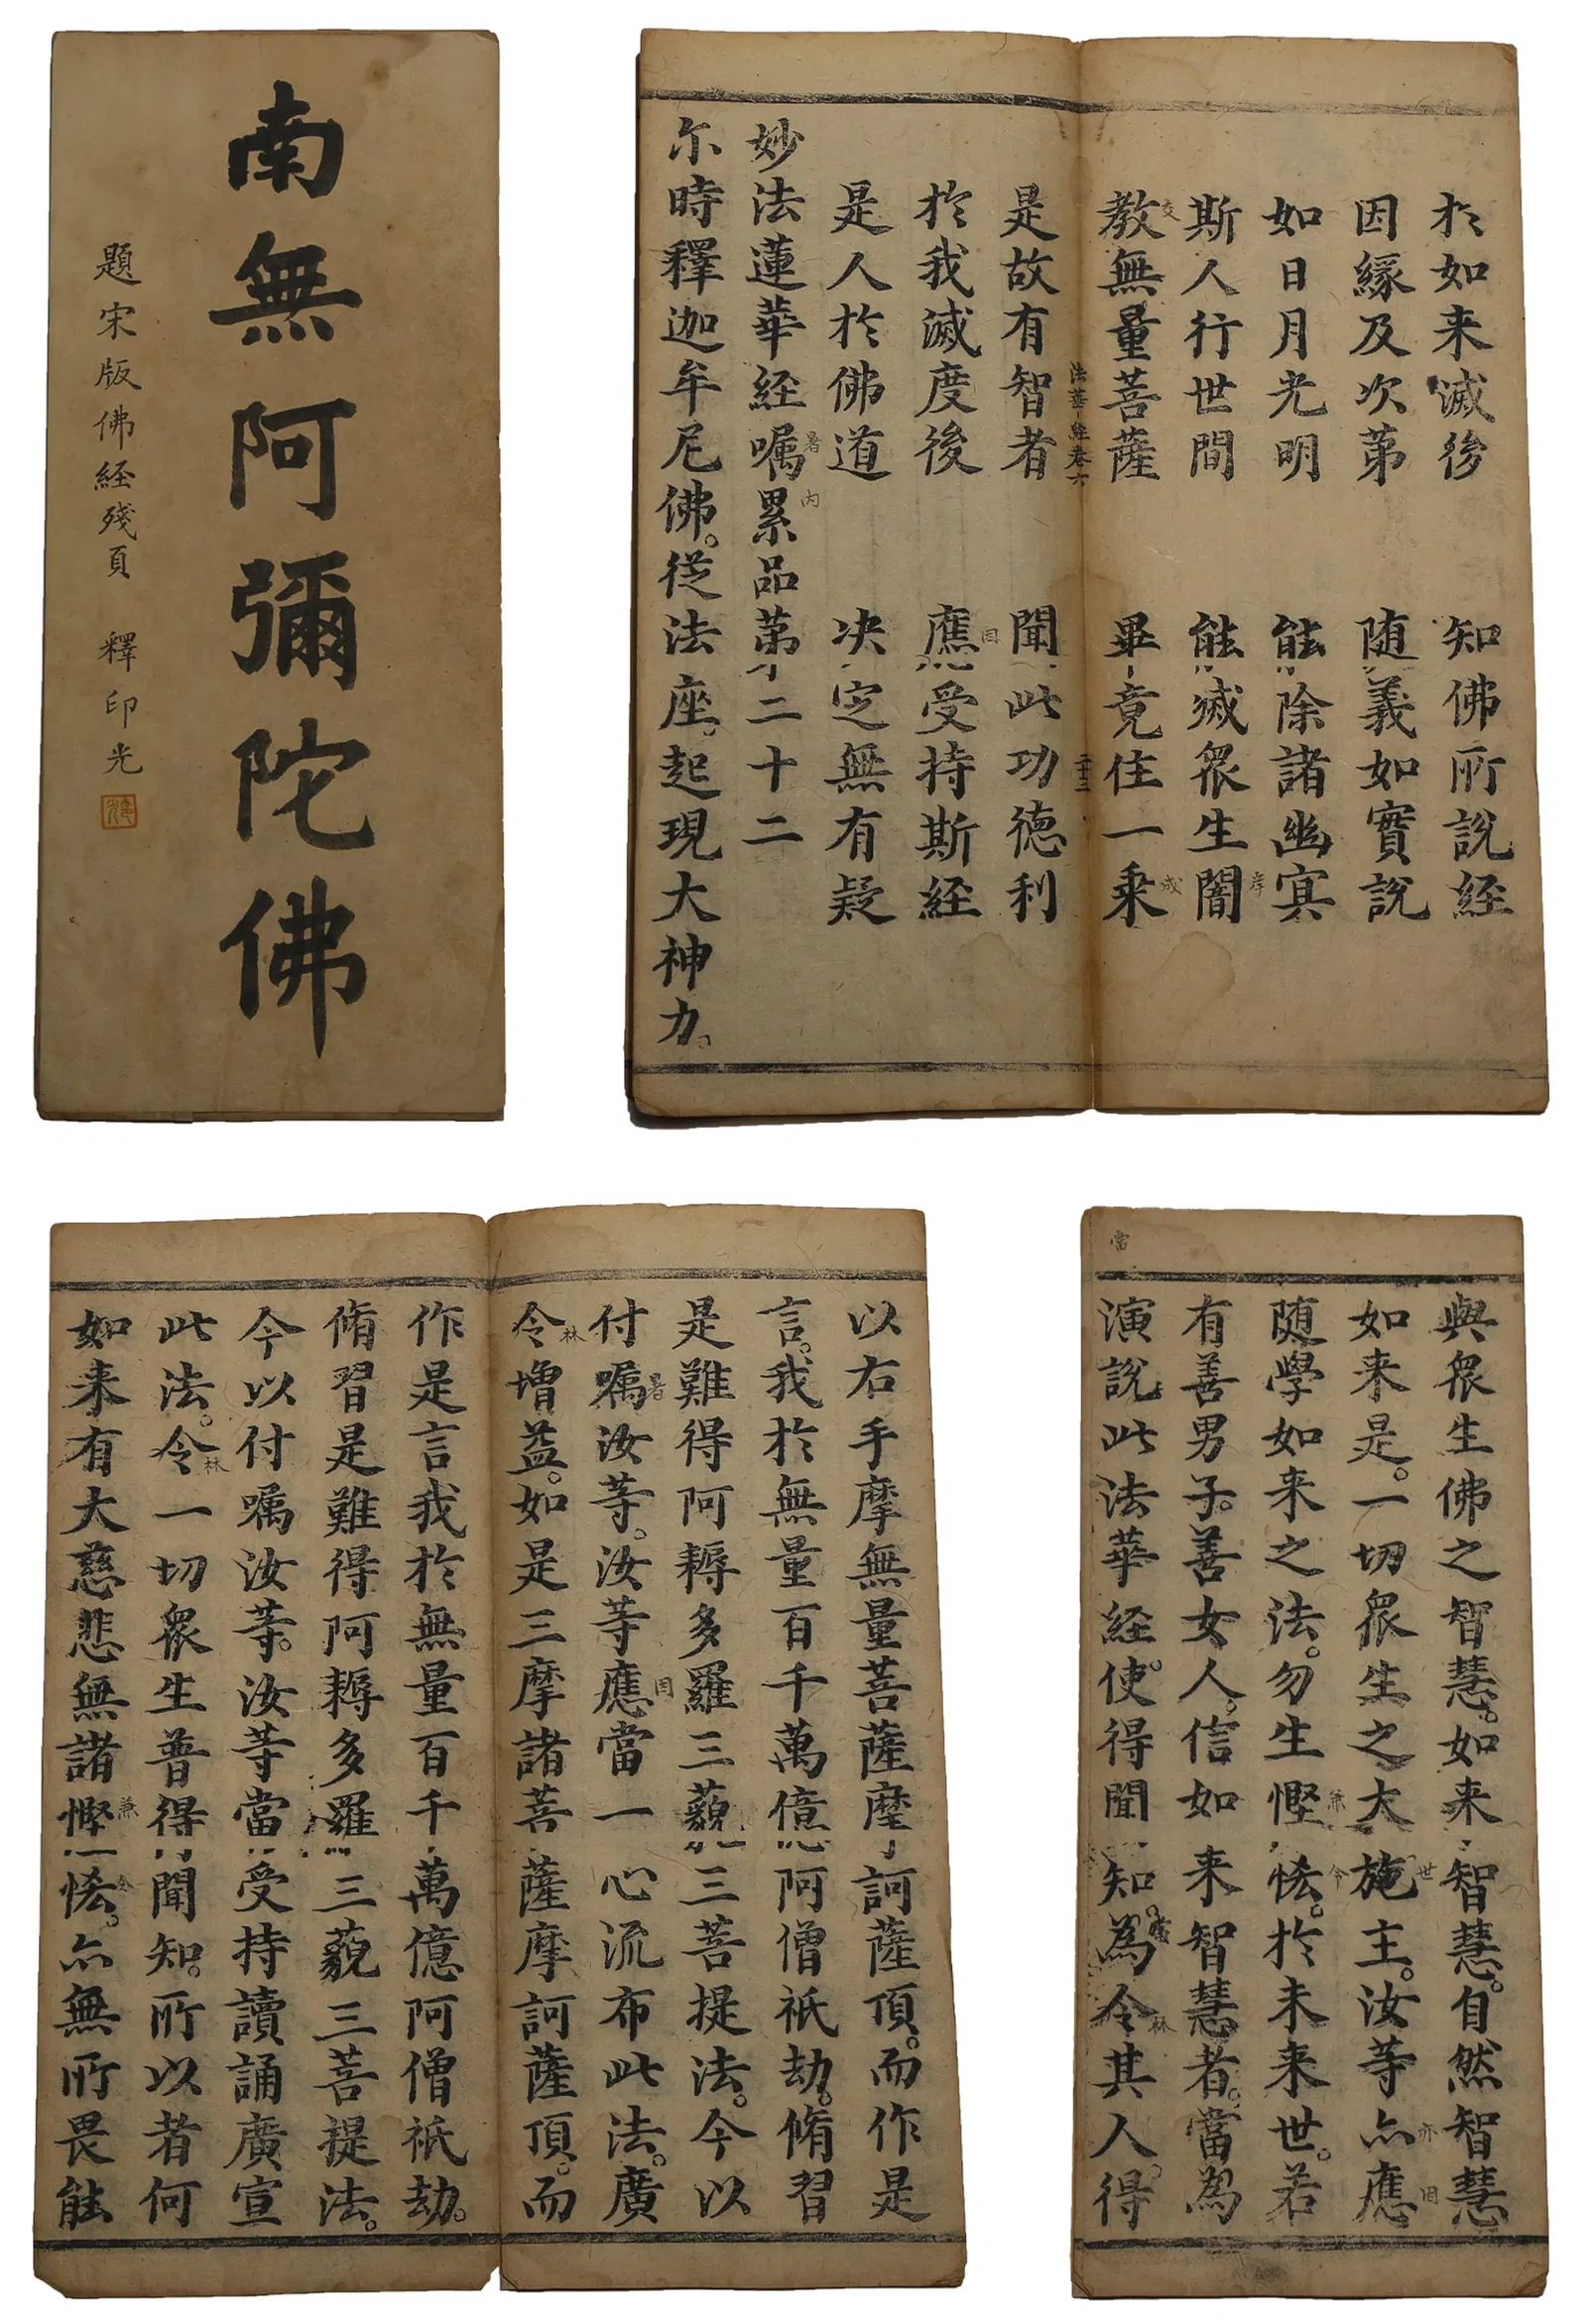 南無阿彌陀佛
題宋版佛經殘頁 釋印光
於如来滅後 知佛所說経
因縁及次苐 随義如實說
如日月光明 能除諸幽㝠
斯人行世間 能滅衆生闇
教無量菩薩 畢竟住一乗
法華経卷六 二十三
是故有智者 聞此功德利
於我滅度後 應受持斯經
是人於佛道 决定無有疑
妙法蓮華経嘱累品苐二十二
尓時釋迦牟尼佛。従法座。起現大神力。
以右手摩無量菩薩摩訶薩頂。而作是
言。我於無量百千萬億阿僧祇劫。脩習
是難得阿耨多羅三藐三菩提法。今以
付嘱汝等。汝等應當一心流布此法。廣
令增益。如是三摩諸菩薩摩訶薩頂。而
作是言我於無量百千萬億阿僧祇劫。
脩習是難得阿耨多羅三藐三菩提法。
今以付嘱汝等。汝等當受持讀誦廣宣
此法。令一切衆生普得聞知。所以者何
如来有大慈悲無諸慳悋。亦無所畏能
與衆生佛之智慧。如来智慧。自然智慧
如来是。一切衆生之大施主。汝等亦應
随學如来之法。勿生慳悋。於未来世。若
有善男子。善女人。信如来智慧者。當為
演說此法華経。使得聞知。為令其人得
當